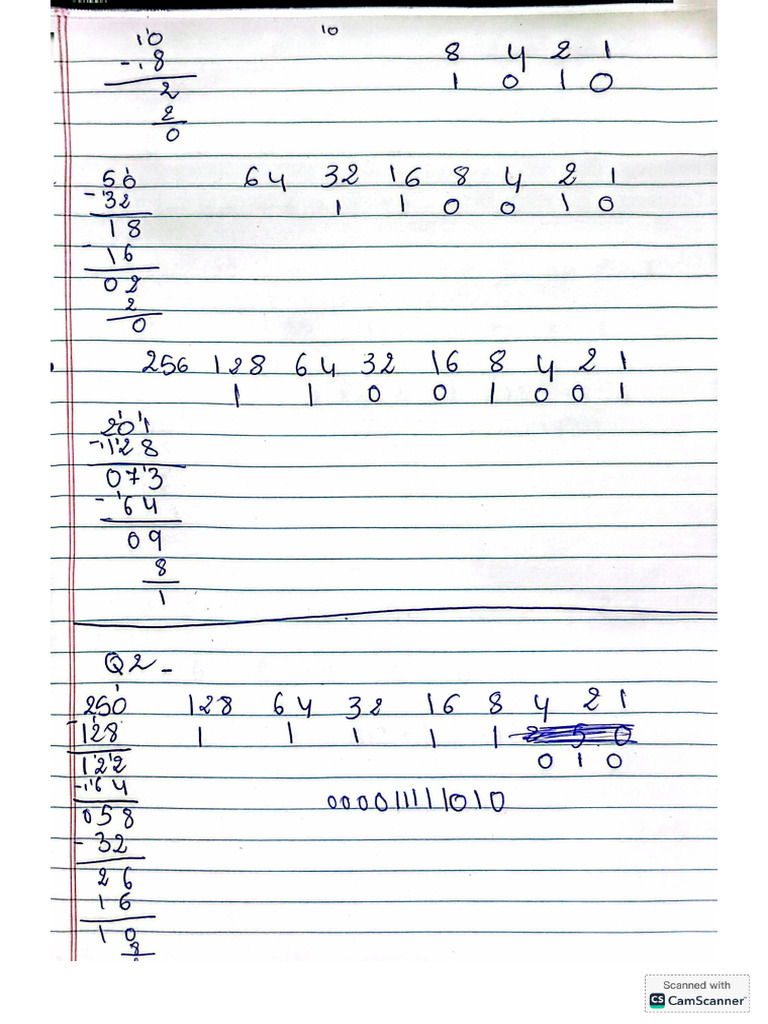 10
10
8 4 2 1
- 8
1 0 1 0
2
2
0
50
64 32 16 8 4 2 1
- 32
1 1 0 0 1 0
18
- 16
02
2
0
256 128 64 32 16 8 4 2 1
1 1 0 0 1 0 0 1
201
- 128
073
- 64
09
8
1
Q2 -
250
128 64 32 16 8 4 2 1
- 128
1 1 1 1 1
122
0 1 0
- 64
000011111010
058
- 32
26
16
10
8
Scanned with
CS CamScanner